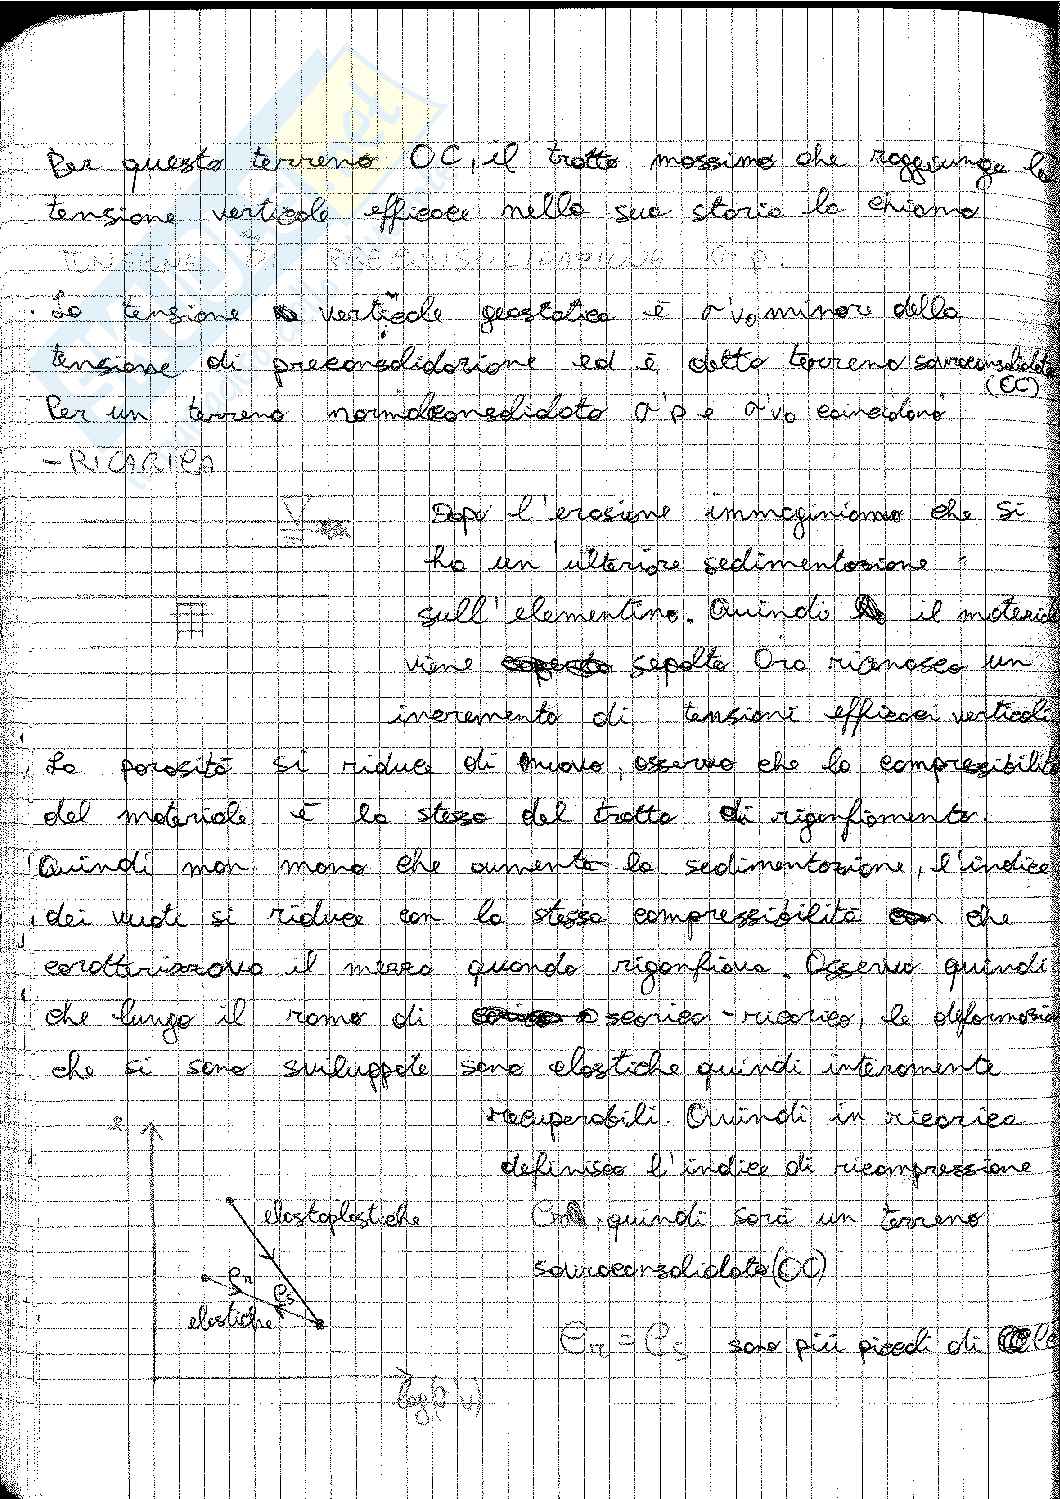 Per questo terreno OC, il tratto massimo che raggiunge la
tensione verticale efficace nella sua storia la chiamo
TENSIONE DI PRECONSOLIDAZIONE σ'p.
. La tensione verticale geostatica è σ'v0 minore della
tensione di preconsolidazione ed è detto terreno sovraconsolidato
(OC)
Per un terreno normalconsolidato σ'p e σ'v0 coincidono
- RICARICA
Dopo l'erosione immaginiamo che si
ha un ulteriore sedimentazione
sull'elementino. Quindi il materiale
viene sepolto Ora riconosco un
incremento di tensioni efficaci verticali
La porosità si riduce di nuovo, osservo che la compressibilità
del materiale è la stessa del tratto di rigonfiamento.
Quindi man mano che aumenta la sedimentazione, l'indice
dei vuoti si riduce con la stessa compressibilità che
caratterizzava il mezzo quando rigonfiava. Osservo quindi
che lungo il ramo di scarico-ricarico, le deformazioni
che si sono sviluppate sono elastiche quindi interamente
recuperabili. Quindi in ricarica
definisco l'indice di ricompressione
Cr, quindi sarà un terreno
sovraconsolidato (OC)
e
elastoplastiche
Cr
Cs
elastiche
Cr = Cs sono più piccoli di Cc
log(σ'v)